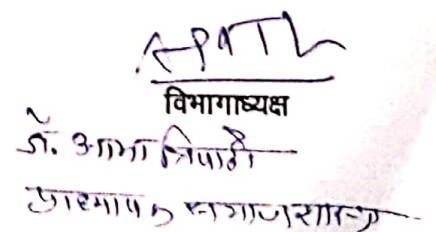 विभागाध्यक्ष
डॉ. आभा त्रिपाठी
प्राध्यापक समाजशास्त्र